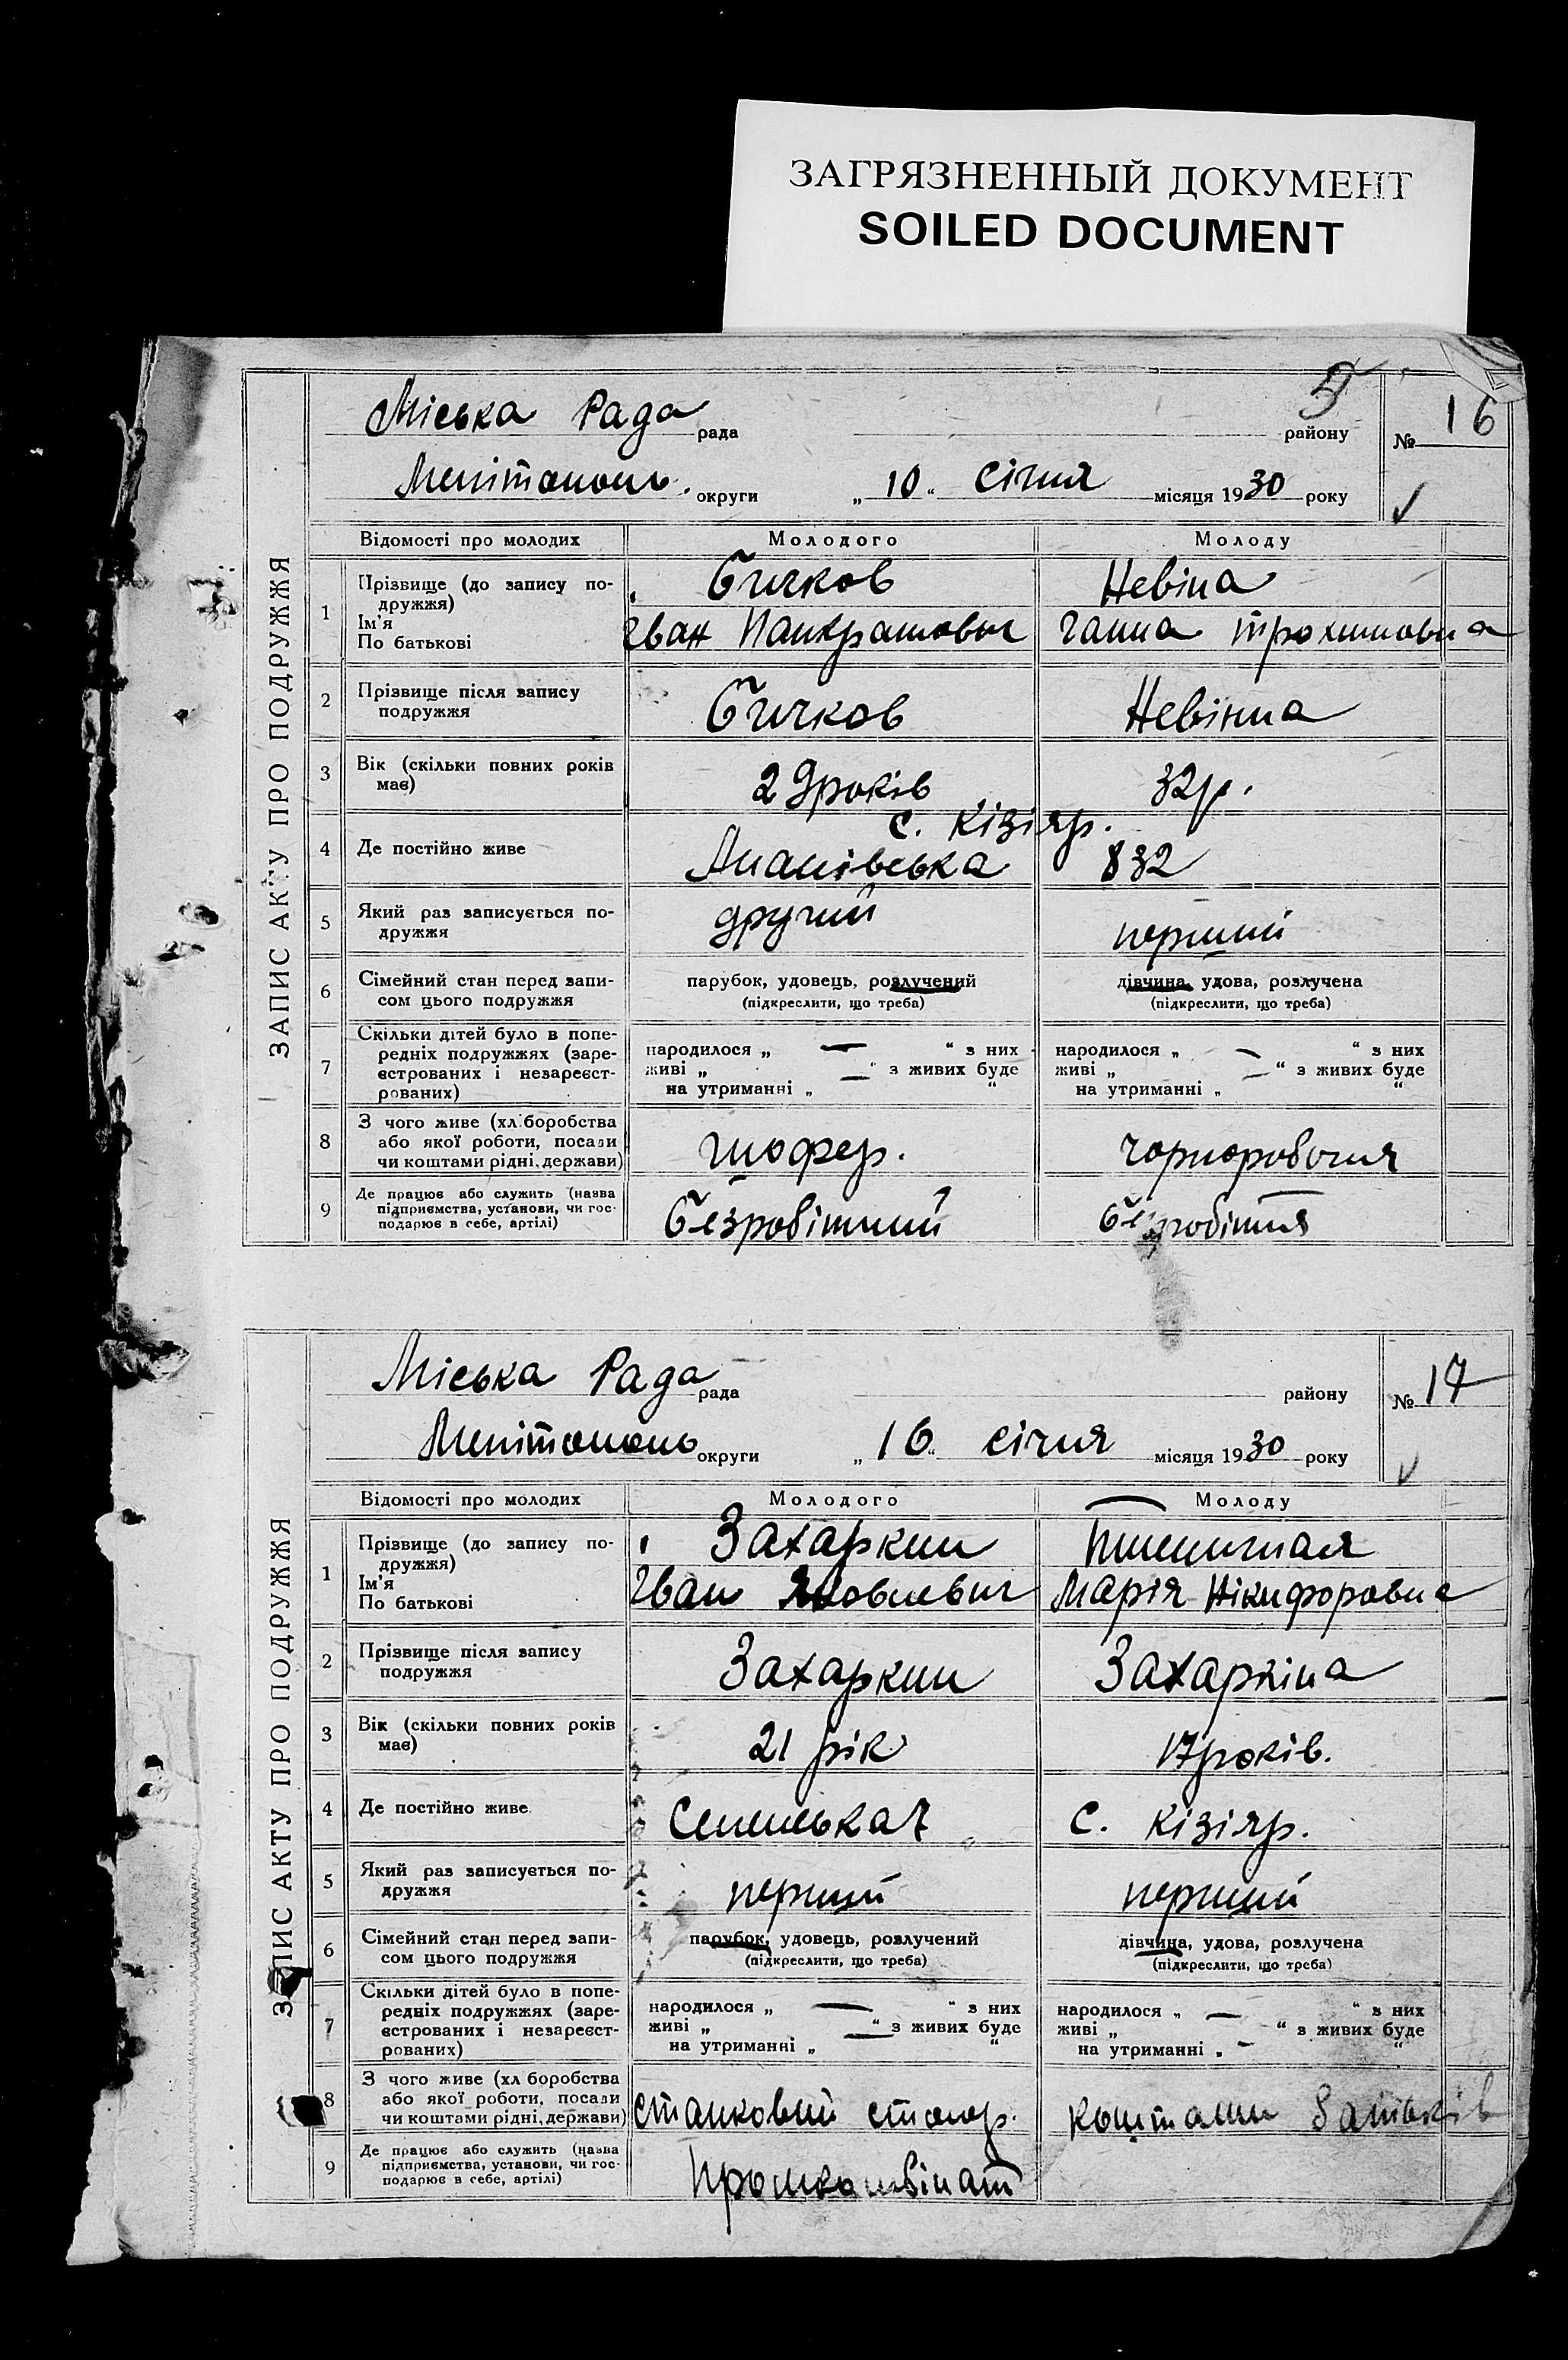 ЗАГРЯЗНЕННЫЙ ДОКУМЕНТ
SOILED DOCUMENT
5
ЗАПИС АКТУ ПРО ПОДРУЖЖЯ
Міська Рада рада району № 16
Мелітополь. округи „10“ січня місяця 1930 року
Відомості про молодих Молодого Молоду
1 Прізвище (до запису по-
дружжя)
Ім'я
По батькові
Бичков Невіна
Іван Панкратович Ганна Трохимовна
2 Прізвище після запису
подружжя
Бичков Невінна
3 Вік (скільки повних років
має)
29 років 32 р.
4 Де постійно живе
с. Кізіяр.
832
5 Який раз записується по-
дружжя
другий перший
6 Сімейний стан перед запи-
сом цього подружжя
парубок, удовець, розлучений дівчина, удова, розлучена
(підкреслити, що треба) (підкреслити, що треба)
7 Скільки дітей було в попе-
редніх подружжях (заре-
єстрованих і незареєст-
рованих)
народилося „ — “ з них народилося „ — “ з них
живі „ — “ з живих буде живі „ — “ з живих буде
на утриманні „ “ на утриманні „ “
8 З чого живе (хл.боробства
або якої роботи, посади
чи коштами рідні, держави)
шофер. чорноробочия
9 Де працює або служить (назва
підприємства, установи, чи гос-
подарює в себе, артілі)
Безробітний безробітня
ЗАПИС АКТУ ПРО ПОДРУЖЖЯ
Міська Рада рада району № 17
Мелітополь округи „16“ січня місяця 1930 року
Відомості про молодих Молодого Молоду
1 Прізвище (до запису по-
дружжя)
Ім'я
По батькові
Захаркин Пшеничная
Іван Яковлевич Марія Нікифоровна
2 Прізвище після запису
подружжя
Захаркин Захаркіна
3 Вік (скільки повних років
має)
21 рік 17 років.
4 Де постійно живе
7 с. Кізіяр.
5 Який раз записується по-
дружжя
перший перший
6 Сімейний стан перед запи-
сом цього подружжя
парубок, удовець, розлучений дівчина, удова, розлучена
(підкреслити, що треба) (підкреслити, що треба)
7 Скільки дітей було в попе-
редніх подружжях (заре-
єстрованих і незареєст-
рованих)
народилося „ — “ з них народилося „ — “ з них
живі „ — “ з живих буде живі „ “ з живих буде
на утриманні „ “ на утриманні „ — “
8 З чого живе (хл боробства
або якої роботи, посади
чи коштами рідні, держави)
станковий столяр. коштами батьків
9 Де працює або служить (назва
підприємства, установи, чи гос-
подарює в себе, артілі)
Промкомбінат